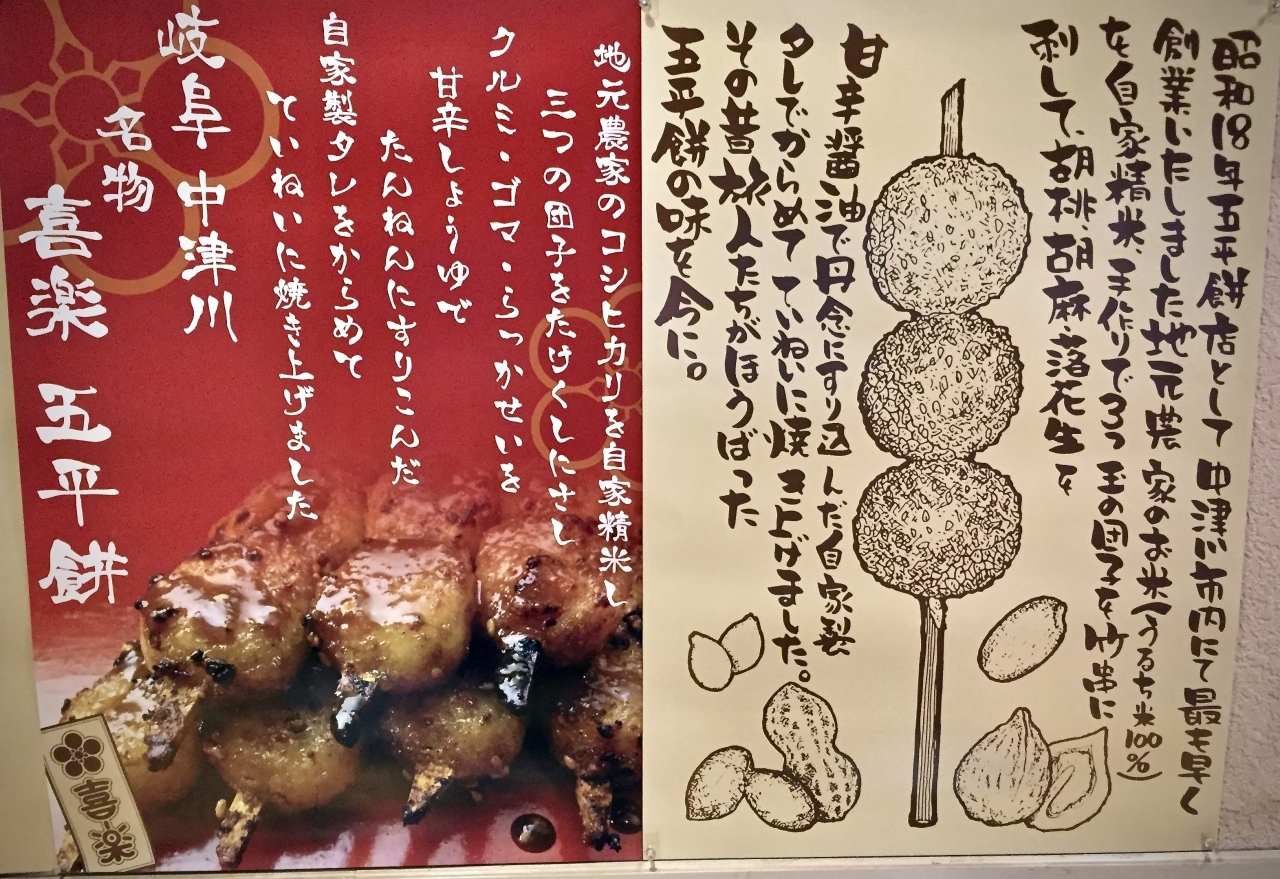 昭和18年五平餅店として 中津川市内にて最も早く
創業いたしました地元農家のお米(うるち米100%)
を自家精米、手作りで3つ玉の団子を竹串に
刺して、胡桃、胡麻、落花生を
甘辛醤油で丹念にすり込んだ自家製
タレでからめて ていねいに焼き上げました。
その昔旅人たちがほうばった
五平餅の味を今に。
地元農家のコシヒカリを自家精米し
三つの団子をたけくしにさし
クルミ・ゴマ・らっかせいを
甘辛しょうゆで
たんねんにすりこんだ
自家製タレをからめて
ていねいに焼き上げました
岐阜 中津川
名物
喜楽 五平餅
喜楽